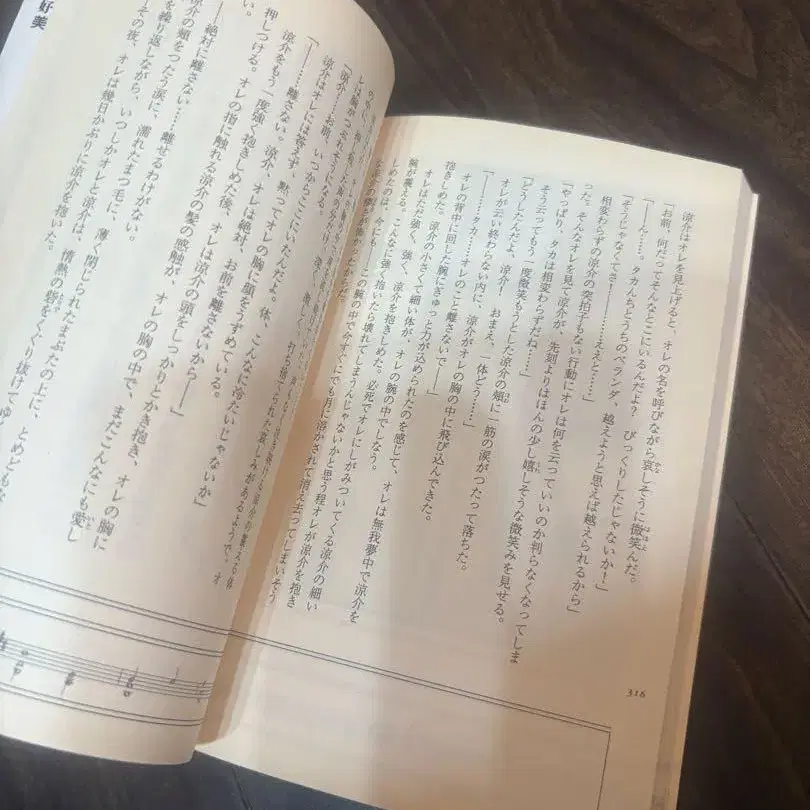 涼介はオレを見上げると、オレの名を呼びながら哀しそうに微笑んだ。
「お前、何だってそんなとこにいるんだよ? びっくりしたじゃないか!」
「――ん……。タカんちとうちのベランダ、越えようと思えば越えられるから」
「そうじゃなくてさ! ――ええと……」
相変わらずの涼介の突拍子もない行動にオレは何を云っていいのか判らなくなってしま
った。そんなオレを見て涼介が、先刻よりはほんの少し嬉しそうな微笑みを見せる。
「やっぱり、タカは相変わらずだね……」
そう云ってもう一度微笑もうとした涼介の頬に一筋の涙がつたって落ちた。
「どうしたんだよ、涼介! おまえ、一体どう……」
オレが云い終わらない内に、涼介がオレの胸の中に飛び込んできた。
「――……タカ……オレのこと離さないで――」
オレの背中に回した腕にぎゅっと力が込められたのを感じて、オレは無我夢中で涼介を
抱きしめた。涼介の小さくて細い体が、オレの腕の中でしなう。
オレはただ強く、強く、涼介を抱きしめた。必死でオレにしがみついてくる涼介の細い
腕が震える。こんなに強く抱いたら壊れてしまうんじゃないかと思う程オレが涼介を抱き
しめたのは、今にも――この腕の中で今すぐにでも月に溶かされて消え去ってしまいそう
な涼介の儚さが怖かったからだ。
316
レは胸がつぶれそうに
「涼介……お前、いつからここにいたんだよ。体、こんなに冷たいじゃないか」
涼介はオレには答えず、黙ってオレの胸に顔をうずめている。
「――離さない。涼介、オレは絶対、お前を離さないから――」
涼介をもう一度強く抱きしめた後、オレは涼介の頭をしっかりとかき抱き、オレの胸に
押しつける。オレの指に触れる涼介の髪の感触が、オレの胸の中で、まだこんなにも愛し
――絶対に離さない……離せるわけがない。
涼介の頬をつたう涙に、濡れたまつ毛に、薄く閉じられたまぶたの上に、とめどもな
を繰り返しながら、いつしかオレと涼介は、情熱の砦をくぐり抜けてゆ
その夜、オレは幾日かぶりに涼介を抱いた。
好美